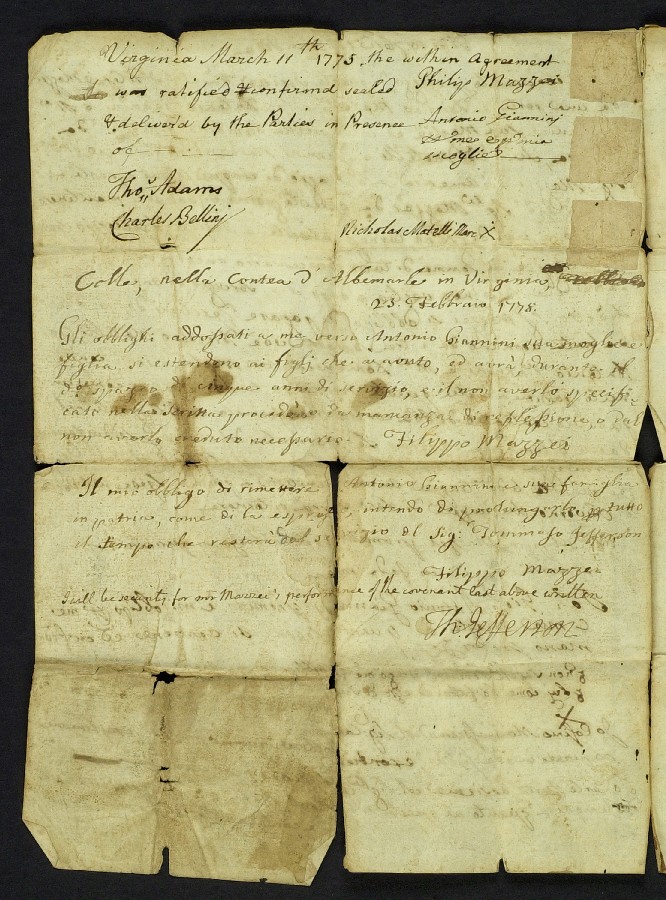 Virginia March 11th 1775 the within Agreement
was ratified & confirmd sealed Philip Mazzei
& deliverd by the Parties in Presence Antonio Giannini
of
moglie
Thos Adams
Charles Bellini
Nicholas Matelli Marc X
Colle, nella Contea d'Albemarle in Virginia,
23. Febbraio 1778.
Gli obblighi addossati a me verso Antonio Giannini sua moglie e
figlia si estendono ai figlj che à avuto, ed avrà durante il
do spazio di cinque anni di servizio, e il non averlo specifi-
cato nella scritta procedè da mancanza di riflessione, o dal
non averlo creduto necessario. Filippo Mazzei
Il mio obbligo di rimettere Antonio Giannini e sua famiglia
in patria, come di là, intendo di prolungarlo p tutto
il tempo che resterà dal servizio del Sigr. Tommaso Jefferson
Filippo Mazzei
I will be security for mr Mazzei's performance of the covenant last above written
Th. Jefferson